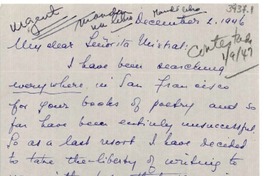 urgent
3937.1
December 2, 1946
Contestada
1/9/47
My dear Señorita Mistral:
I have been searching
everywhere in San Francisco
for your books of poetry and so
far have been entirely unsuccessful.
So as a last resort I have decided
to take the liberty of writing to